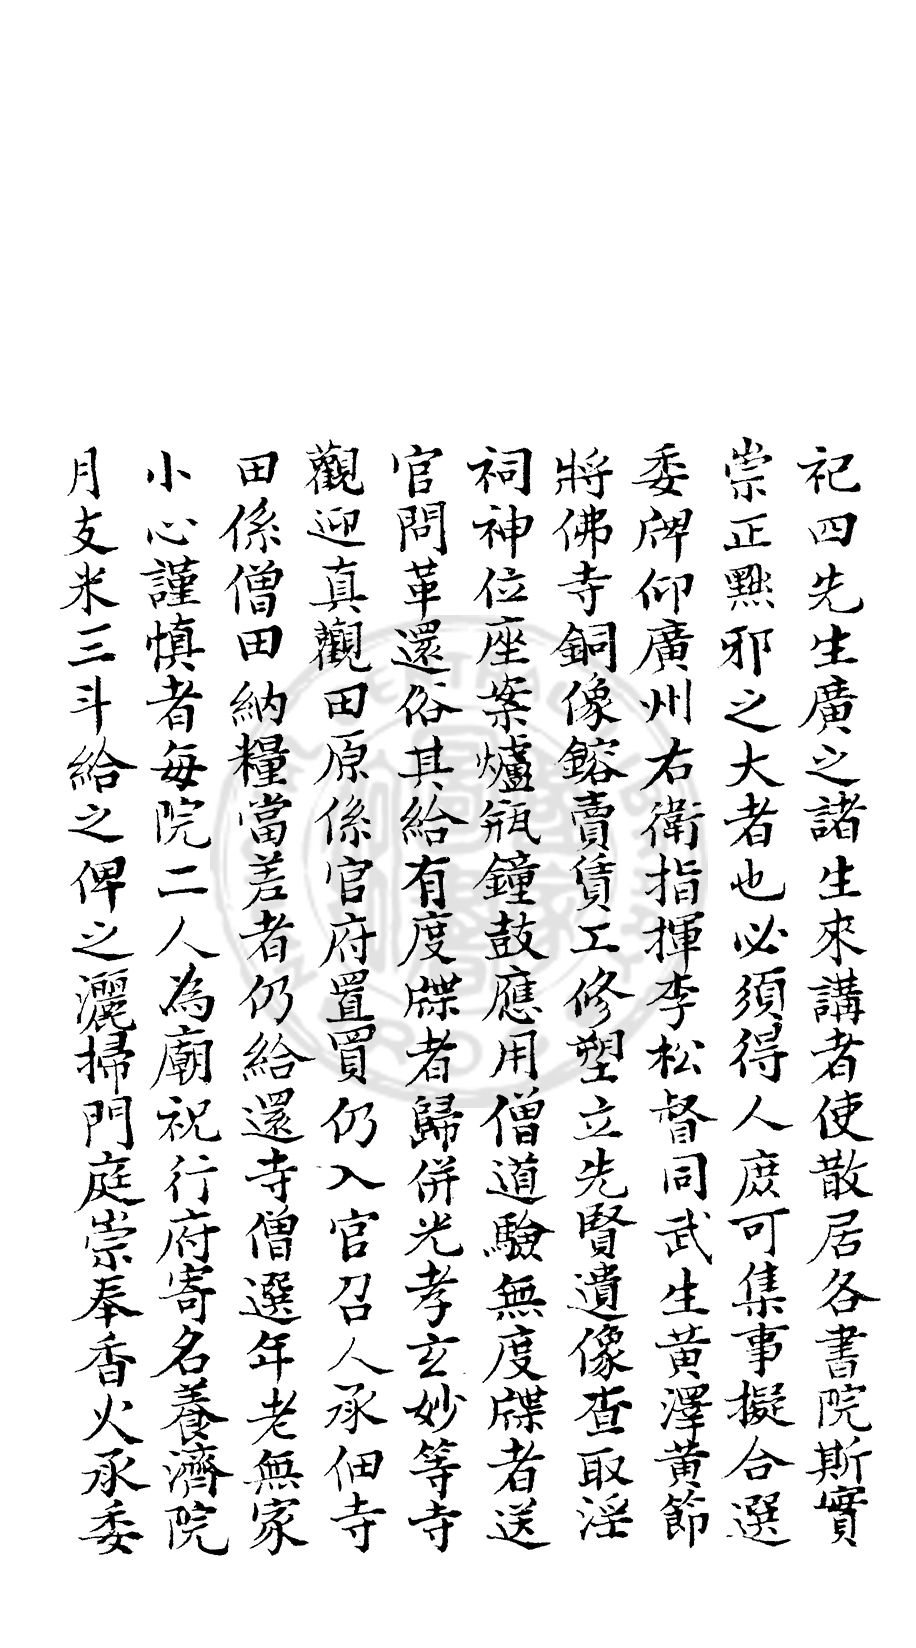 祀四先生廣之諸生來講者使散居各書院斯實
崇正黜邪之大者也必須得人庶可集事擬合選
委牌仰廣州右衛指揮李松督同武生黃澤黃節
將佛寺銅像鎔賣賃工修塑立先賢遺像查取淫
祠神位座案爐瓶鐘鼓應用僧道驗無度牒者送
官問革還俗其給有度牒者歸併光孝玄妙等寺
觀迎真觀田原係官府置買仍入官召人承佃寺
田係僧田納糧當差者仍給還寺僧選年老無家
小心謹慎者每院二人為廟祝行府寄名養濟院
月支米三斗給之俾之灑掃門庭崇奉香火承委